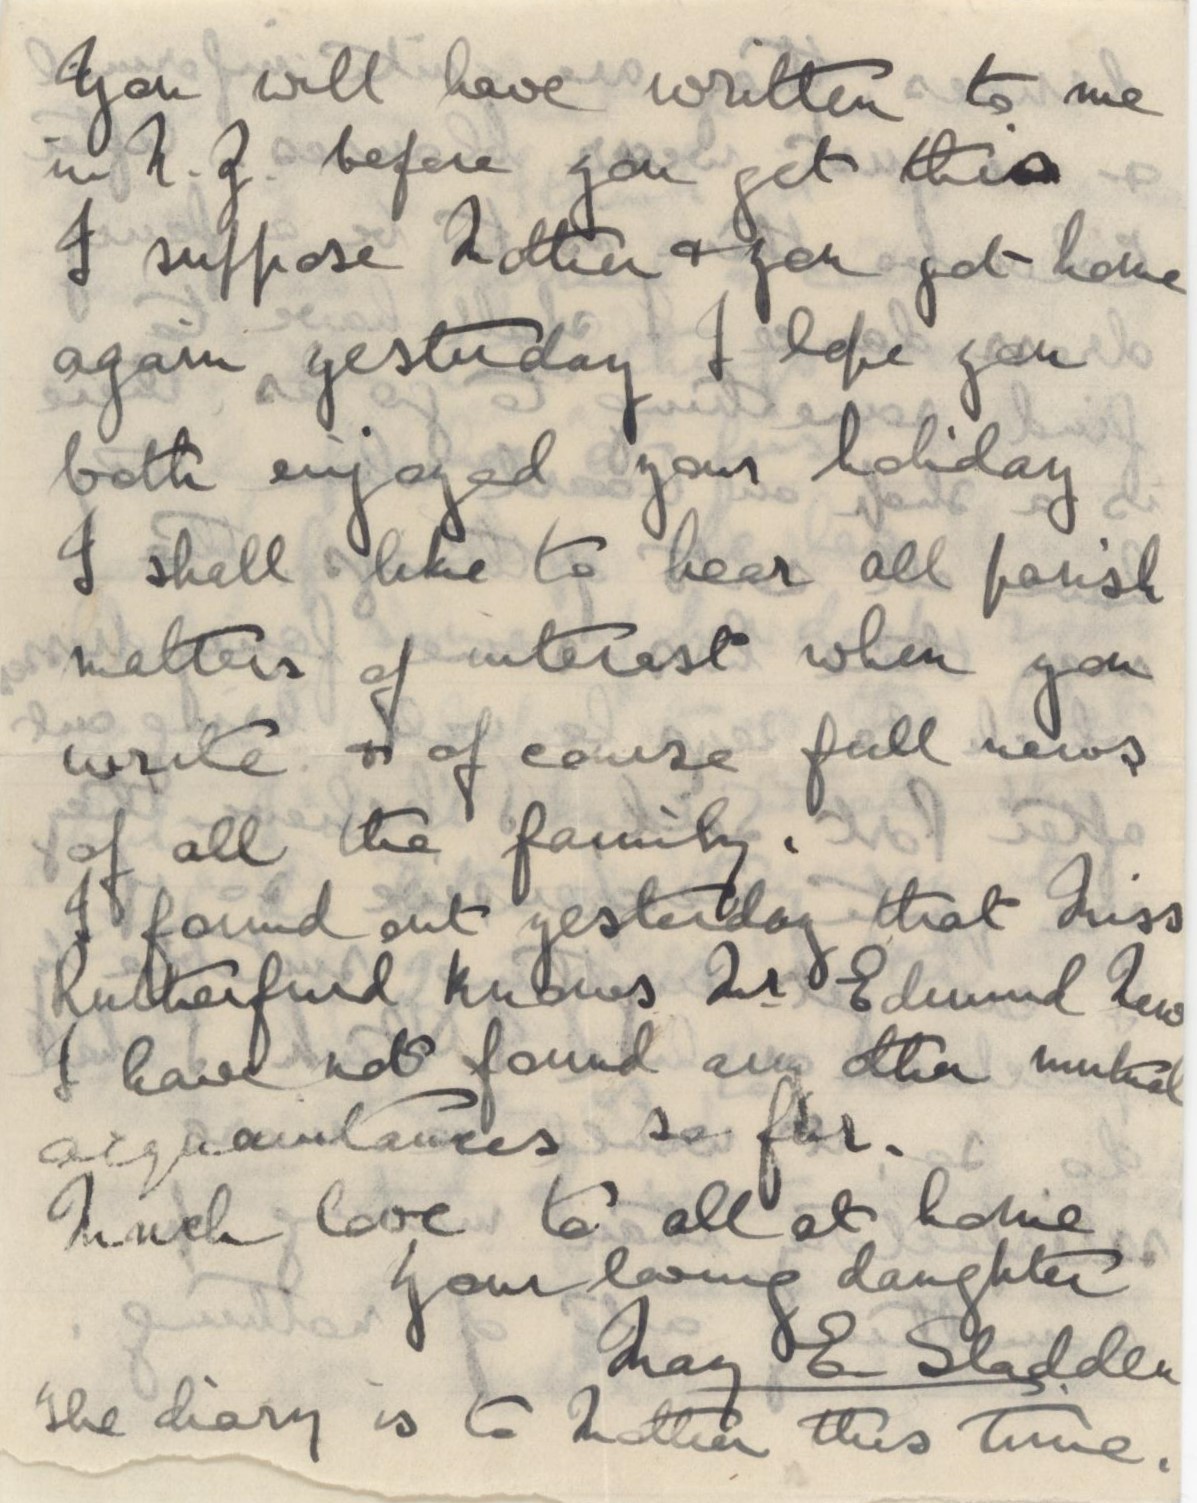 You will have written to me
in N.Z. before you get this
I suppose Mother & you got home
again yesterday I hope you
both enjoyed your holiday
I shall like to hear all parish
matters of interest when you
write & of course full news
of all the family.
I found out yesterday that Miss
Rutherfurd knows Mr Edmund New
I have not found any other mutual
acquaintances so far.
Much love to all at home
Your loving daughter
May E Sladden
The diary is to Mother this time.